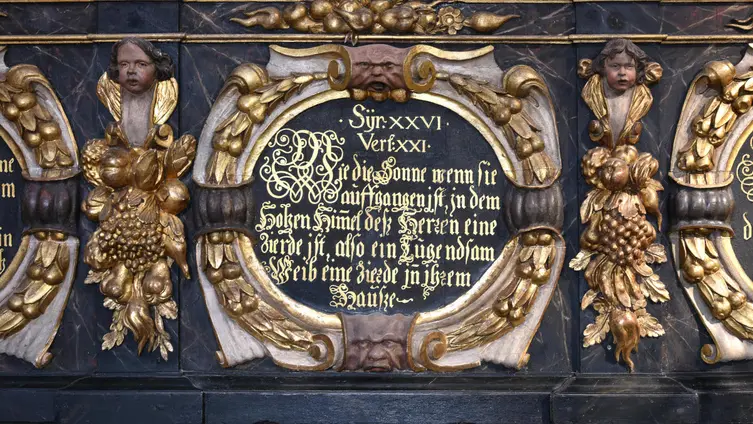 · Sÿr: XXVI ·
Verß: XXI ·
Wie die Sonne wenn sie
auffgangen ist, in dem
Hohen Himel deß Herren eine
zierde ist, also ein Tugendsam
Weib eine zierde in ihrem
Hauße